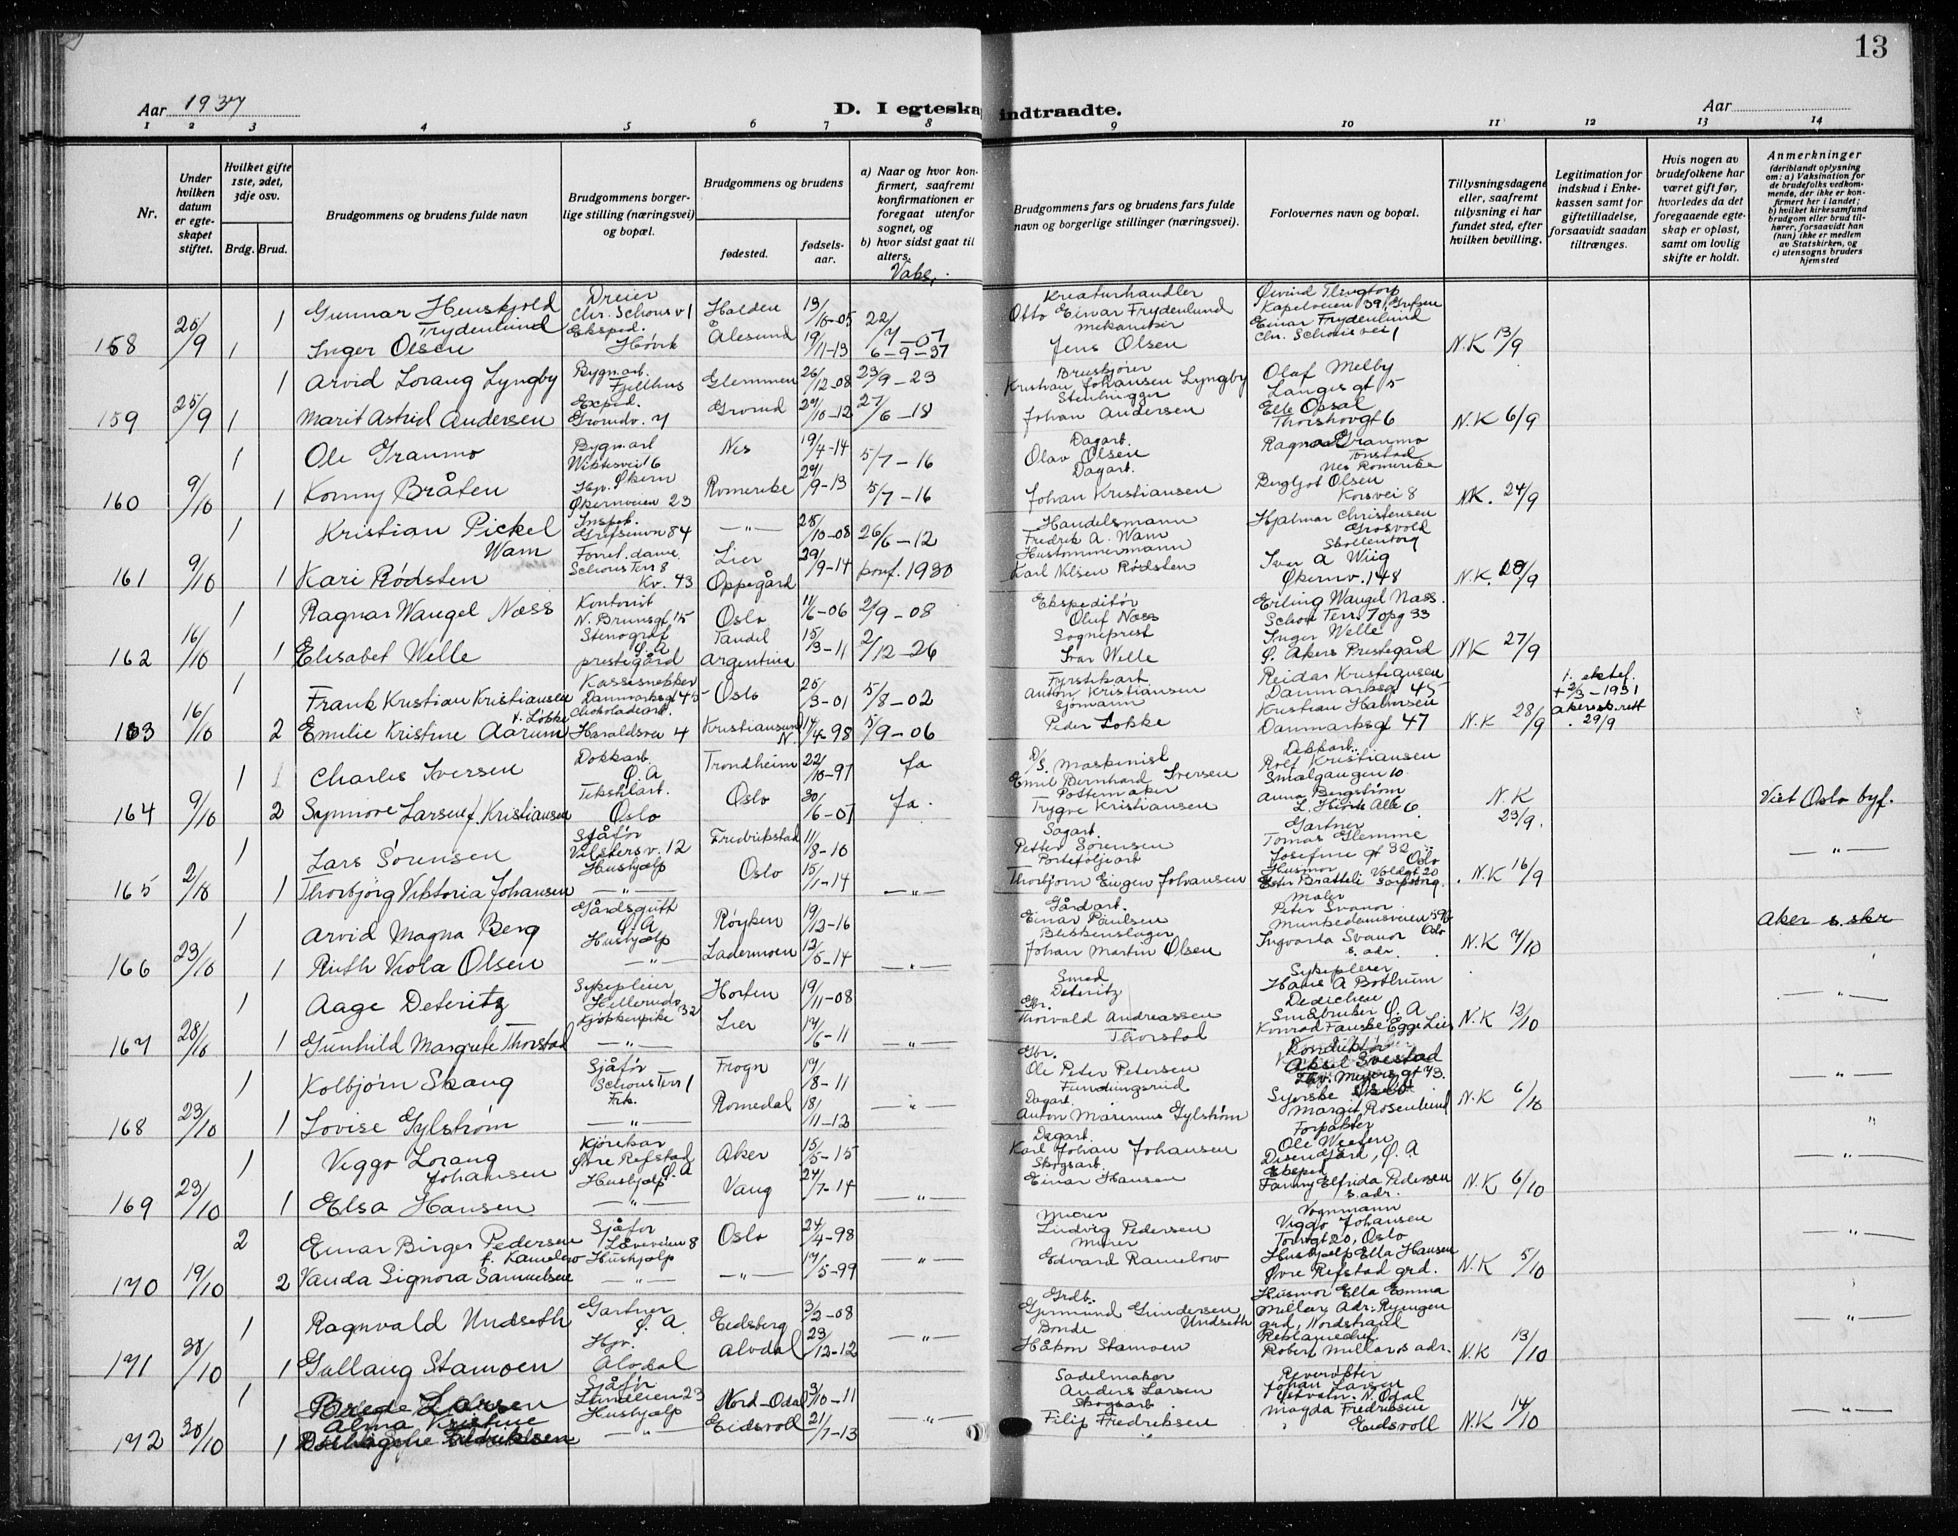 13
Aar 1937
D. I egteskap indtraadte.
Aar
1 2 3 4 5 6 7 8 9 10 11 12 13 14
Nr.
Under hvilken datum er egteskapet stiftet.
Hvilket gifte 1ste, 2det, 3dje osv.
Brdg. Brud.
Brudgommens og brudens fulde navn
Brudgommens borgerlige stilling (næringsvei) og bopæl.
Brudgommens og brudens
fødested.
fødselsaar.
a) Naar og hvor konfirmert, saafremt konfirmationen er foregaat utenfor sognet, og
b) hvor sidst gaat til alters.
Brudgommens fars og brudens fars fulde navn og borgerlige stillinger (næringsvei).
Forlovernes navn og bopæl.
Tillysningsdagene eller, saafremt tillysning ei har fundet sted, efter hvilken bevilling.
Legitimation for indskud i Enkekassen samt for giftetilladelse, forsaavidt saadan tiltrænges.
Hvis nogen av brudefolkene har været gift før, hvorledes da det foregaaende egteskap er opløst, samt om lovlig skifte er holdt.
Anmerkninger
(deriblandt oplysning om: a) Vaksination for de brudefolks vedkommende, der ikke er konfirmert her i landet; b) hvilket kirkesamfund brudgom eller brud tilhører, forsaavidt han (hun) ikke er medlem av Statskirken, og c) utensogns bruders hjemsted
158 25/9 1 1
Gunnar Henskjold Frydenlund
Dreier Chr. Schous v 1
Halden
13/10-05
22/7-07
Kreaturhandler Otto Einar Frydenlund
Kapelveien 39, Grefsen
Einar Frydenlund
Chr. Schous vei 1
Inger Olsen
Eksped. Høvik
Ålesund
19/11-13
6-9-37
mekaniker Jens Olsen
N.K 13/9
159 25/9 1 1
Arvid Lorang Lyngby
Bygn.arb. Fjellhus
Glemmen
26/12-08
23/9-23
Kristian Johansen Lyngby
Olaf Melby
Langes gt 5
Marit Astrid Andersen
Exped. Gromdv. 7
Grorud
27/6-18
Stenhugger Johan Andersen
Elle Opsal
Thorshovgt 6
N.K 6/9
160 9/10 1 1
Ole Granmo
Bygn.arb
Nes
19/4-14
5/7-16
Dagarb. Olav Olsen
Ragna Granmo
Nes Romerike
Konny Bråten
Hjv. Økern Økernveien 23
Romerike
5/7-16
Dagarb. Johan Kristiansen
Bergljot Olsen
Korsvei 8
NK. 24/9
161 9/10 1 1
Kristian Pickel Wam
Inspek. Grefsenvn 84
-"-
25/10-08
26/6-12
Handelsmann Fredrik A. Wam
Hjalmar Christensen
Kari Rødsten
Schous Terr 8
Lier Oppegård
29/9-14
konf. 1930
Hustommermann Karl Nilsen Rødsten
Iver A Wiig
Økernv. 148
N.K. 28/9
162 16/10 1 1
Ragnar Waugel Næss
Kontorist N. Brunsgt 15
Oslo
11/6-06
2/9-08
Ekspeditør Oluf Næss
Erling Waugel Næss.
Schous Terr 7 opg 33
Elisabet Welle
Stenograf Ø. A prestegård
Tandil Argentina
15/3-11
2/12-26
Sogneprest Ivar Welle
Inger Welle
Ø. Akers Prestegård
NK 27/9
163 16/10 1 2
Frank Kristian Kristiansen
Danmarksgt 45
Oslo
25/3-01
5/8-02
Anton Kristiansen
Reidar Kristiansen
Danmarksgt 45
1. ektef. + 2/3-1931
Emilie Kristine Aarum f. Løkke
Chokoladearb. Haraldsvei 4
Kristiansund N.
14/4-98
5/9-06
Sjømann Peder Løkke
Kristian Halvorsen
Danmarksgt 47
N.K 28/9
Akersk. rett 29/9
164 9/10 1 2
Charles Iversen
Dokkarb. Ø. A
Trondheim
22/10-97
fa
D/S. Maskinist Emil Bernhard Iversen
Dekkarb. Rolf Kristiansen
Smalgangen 10
Synnøve Larsen f. Kristiansen
Tekstilarb. Oslo
Oslo
30/6-07
fa.
Pottemaker Trygve Kristiansen
Anna Bergstrøm
L. Hiorts Alle 6
N.K 23/9.
Viet Oslo byf.
165 2/10 1 1
Lars Sørensen
Sjåfør
Fredrikstad
11/18-10
Sagarb. Petter Sørensen
Gartner Tomas Glemme
Josefine gt 32 Oslo
-"-
Thorbjørg Viktoria Johansen
Hushjelp
-"-
Oslo
15/1-14
-"-
Porteføljearb Thorbjørn Eugen Johansen
Husmor Ester Bratteli
N.K 16/9
166 23/10 1 1
Arvid Magna Berg
Gårdsgutt Ø. A
Røyken
19/12-16
Gårdarb. Einar Paulsen
Maler Peter Svanor
Munkedamsveien 59b Oslo
Aker s. skr
Ruth Viola Olsen
Hushjelp
-"-
Lademoen
12/5-14
-"-
Blikkenslager Johan Martin Olsen
Ingvarda Svanor
s. adr.
N.K 7/10
167 28/10 1 1
Aage Deteritz
Sykepleier
Horten
19/11-08
Smed Deteritz
Sykepleier Hans A Bottrum
Dedichen
-"-
Gunhild Margrete Thorstad
Kjøkkenpike
-"-
Lier
17/6-11
-"-
Gbr. Thorvald Andreassen Thorstad
Småbruker Ø. A
Konrad Fauske Egge Lier
N.K 12/10
168 23/10 1 1
Kolbjørn Skaug
Sjåfør Schous Terr 1
Frogn
17/8-11
Gbr. Ole Peter Petersen
Konduktør
Aksel Svestad
-"-
Lovise Gylstrøm
Frk.
-"-
Romedal
18/11-12
-"-
Dagarb. Anton Marinius Gylstrøm
Syerske Margit Rosenlund
N.K 6/10
169 23/10 1 1
Viggo Lorang Johansen
Kjørekar Øvre Refstad Ø. A
Aker
15/5-15
Dagarb. Karl Johan Johansen
Forpakter Ole Weeten
Disen gård, Ø. A
-"-
Elsa Hansen
Hushjelp
-"-
Vang
24/7-14
-"-
Skogsarb. Einar Hansen
Eksped Fanny Elfrida Pedersen
s. adr.
N.K 6/10
170 19/10 2 2
Einar Birger Pedersen
Sjåfør Løveveien 8
Oslo
24/4-98
Murer Ludvig Pedersen
Vognmann Viggo Johansen
Torvgt 20, Oslo
-"-
Vanda Signora Samuelsen f. Ramelow
Hushjelp
-"-
-"-
17/5-99
-"-
Murer Edvard Ramelow
Hushjelp Ella Hansen
Øvre Refstad grd.
N.K 5/10
171 30/10 1 1
Ragnvald Undseth
Gartner Ø. A.
Eidsberg
3/2-08
Grdb. Gjermund Gundersen Undseth
Husmor Ella Emma Millar, Adr. Ryengen grd, Nordstrand
-"-
Gullaug Stamoen
Hjv. Alvdal
Alvdal
23/12-12
-"-
Bonde Håkon Stamoen
Reklamechef Robert Millar s adr.
N.K 13/10
172 30/10 1 1
Brede Larsen
Sjåfør
Nord-Odal
3/10-11
Sadelmaker Anders Larsen
Johan Larsen
N. Odal
-"-
Alma Kristine Fredriksen
Hushjelp
-"-
Eidsvoll
21/7-13
-"-
Skogsarb. Filip Fredriksen
Magda Fredriksen
Eidsvoll
N.K 14/10